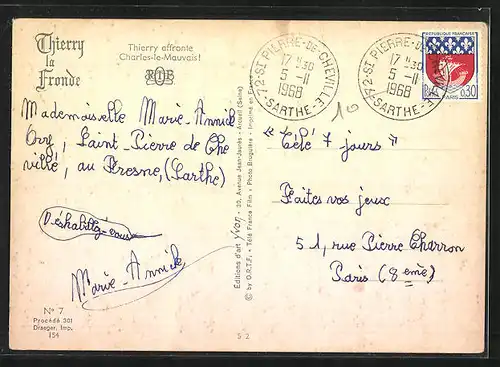 Thierry
la
Fronde
Thierry affronte
Charles-le-Mauvais!
72-ST PIERRE-DE-CHEVILLE
17 H30
5-11
1968
SARTHE
72-ST PIERRE-DE-
17 H30
5-11
1968
SARTHE
REPUBLIQUE FRANÇAISE
0,30
PARIS
16
Mademoiselle Marie-Annick
, Saint-Pierre de Che
villé, au Fresne, (Sarthe)
Déshabillez-vous
Marie-Annick
"Télé 7 jours"
Faites vos jeux
51, rue Pierre Charron
Paris (8eme)
Editions d'art yvon - 20, Avenue Jean-Jaurès - Arcueil (Seine)
© by O.R.T.F. - Télé France Film - Photo Bruguière - Imprimé en France
N° 7
Procédé 301
Draeger, Imp.
154
S 2